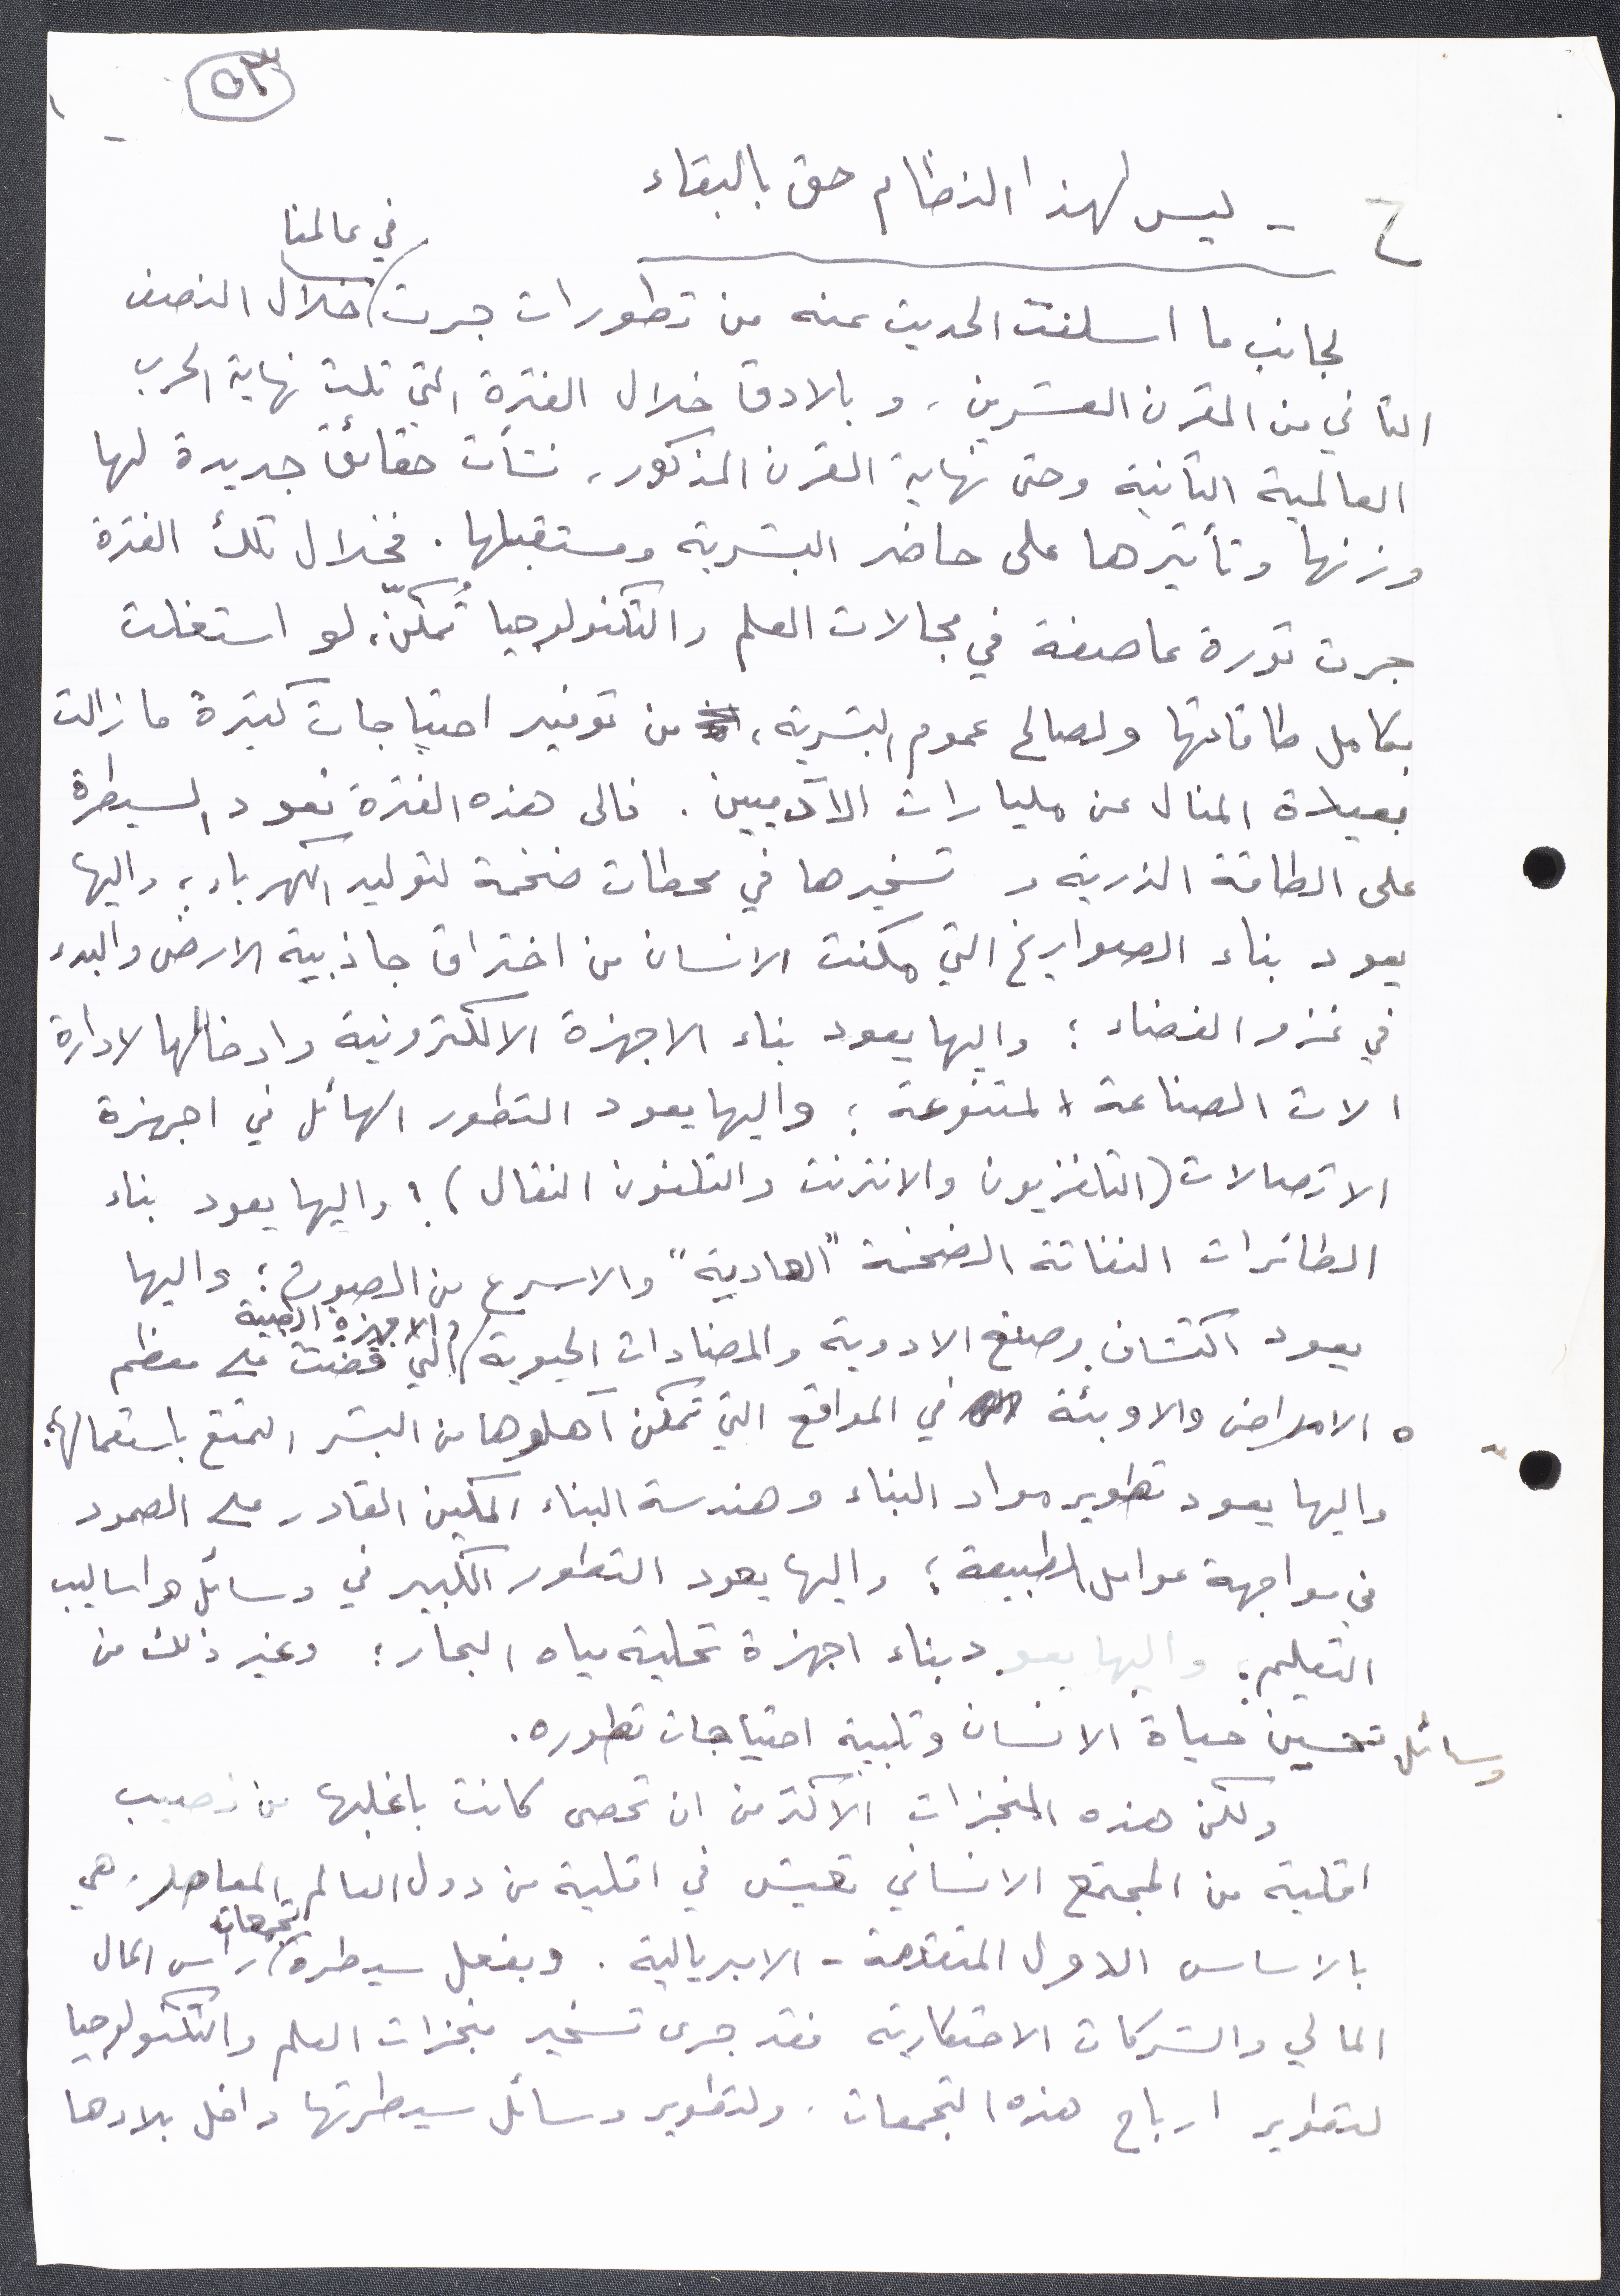 ٥٣
ح - ليس لهذا النظام حق بالبقاء
لجانب ما اسلفت الحديث عنه من تطورات جرت في عالمنا خلال النصف
الثاني من القرن العشرين، و بالادق خلال الفترة التي تلت نهاية الحرب
العالمية الثانية وحتى نهاية القرن المذكور، نشأت حقائق جديدة لها
وزنها وتأثيرها على حاضر البشرية ومستقبلها. فخلال تلك الفترة
جرت ثورة عاصفة في مجالات العلم والتكنولوجيا تُمكّن، لو استغلت
بكامل طاقاتها ولصالح عموم البشرية، من توفير احتياجات كثيرة ما زالت
بعيدة المنال عن مليارات الآدميين. فالى هذه الفترة تعود السيطرة
على الطاقة الذرية و تسخيرها في محطات ضخمة لتوليد الكهرباء؛ واليها
يعود بناء الصواريخ التي مكنت الانسان من اختراق جاذبية الارض والبدء
في غزو الفضاء؛ واليها يعود بناء الاجهزة الالكترونية وادخالها لادارة
الات الصناعة المتنوعة؛ واليها يعود التطور الهائل في اجهزة
الاتصالات (التلفزيون والانترنت والتلفون النقال)؛ واليها يعود بناء
الطائرات النفاثة الضخمة "العادية" والاسرع من الصوت؛ واليها
يعود اكتشاف وصنع الادوية والمضادات الحيوية والاجهزة الطبية التي قضت على معظم
الامراض والاوبئة في المواقع التي تمكن آهلوها من البشر التمتع باستعمالها؛
واليها يعود تطوير مواد البناء وهندسة البناء المكين القادر على الصمود
في مواجهة عوامل الطبيعة؛ واليها يعود التطور الكبير في وسائل واساليب
التعليم؛ واليها يعود بناء اجهزة تحلية مياه البحار؛ وغير ذلك من
وسائل تحسين حياة الانسان وتلبية احتياجات تطوره.
ولكن هذه المنجزات الأكثر من ان تحصى كانت باغلبها من نصيب
اقلية من المجتمع الانساني تعيش في اقلية من دول العالم المعاصر، هي
بالاساس الدول المتقدمة - الامبريالية. وبفعل سيطرة تجمعات راس المال
المالي والشركات الاحتكارية فقد جرى تسخير منجزات العلم والتكنولوجيا
لتطوير ارباح هذه التجمعات، ولتطوير وسائل سيطرتها داخل بلادها